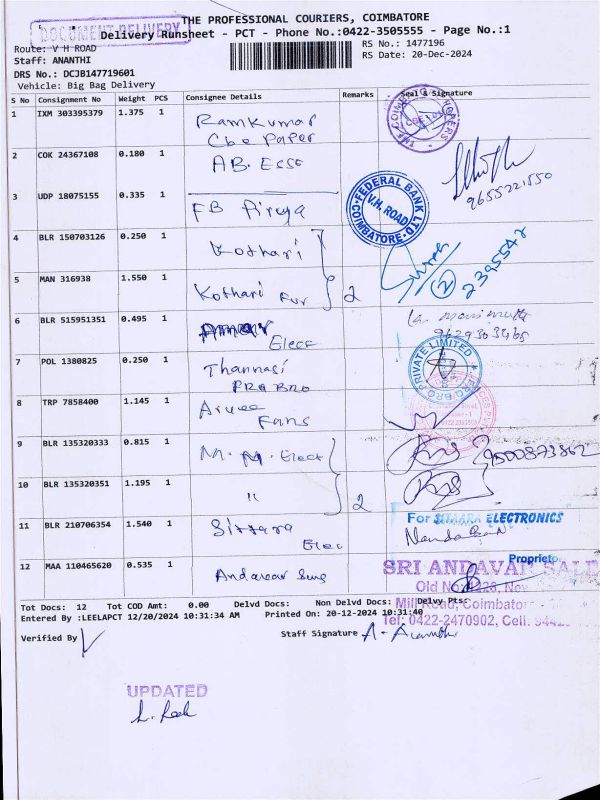 THE PROFESSIONAL COURIERS, COIMBATORE
DOCUMENT DELIVERY
Delivery Runsheet - PCT - Phone No.:0422-3505555 - Page No.:1
Route: V H ROAD
RS No.: 1477196
Staff: ANANTHI
RS Date: 20-Dec-2024
DRS No.: DCJB147719601
Vehicle: Big Bag Delivery
S No Consignment No Weight PCS Consignee Details Remarks Seal & Signature
1 IXM 303395379 1.375 1 Ramkumar
Cbe Paper
2 COK 24367108 0.180 1 AB. Esso
9655221550
3 UDP 18075155 0.335 1 FB Priya
COIMBATORE FEDERAL BANK LTD
V.H. ROAD
4 BLR 150703126 0.250 1 Kothari
2 2395542
5 MAN 316938 1.550 1 Kothari Fur 2
6 BLR 515951351 0.495 1 Amar
Elect
9629303465
7 POL 1380825 0.250 1 Thannasi
PRO BRO
PRIVATE LIMITED
8 TRP 7858400 1.145 1
Fans
9 BLR 135320333 0.815 1 M. M. Elect 9500873862
10 BLR 135320351 1.195 1 " 2
11 BLR 210706354 1.540 1 Sittara
Elec
For SITARA ELECTRONICS
Proprietor
12 MAA 110465620 0.535 1 Andavar Sens
SRI ANDAVAR SALE
Old No
Mill Road, Coimbator
Tel: 0422-2470902, Cell: 944
Tot Docs: 12 Tot COD Amt: 0.00 Delvd Docs: Non Delvd Docs: Delvy Pts:
Entered By :LEELAPCT 12/20/2024 10:31:34 AM Printed On: 20-12-2024 10:31:40
Verified By Staff Signature
UPDATED